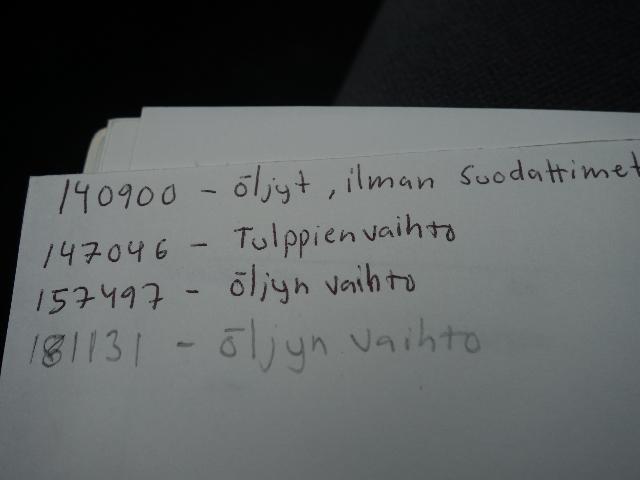 140900 - öljyt, ilman suodattimet
147046 - Tulppien vaihto
157497 - öljyn vaihto
181131 - öljyn vaihto